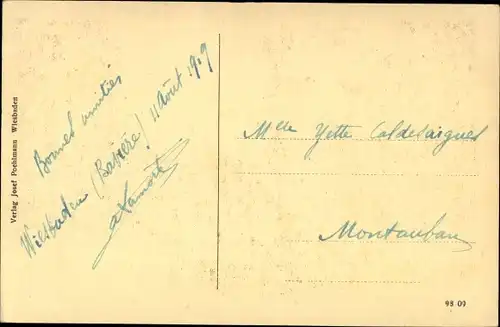 Bonnes amitiés
Wiesbaden (Bavière) 11 Août 1919
Mlle Yette Caldesaigues
Montauban
Verlag Josef Poehlmann Wiesbaden
98 09